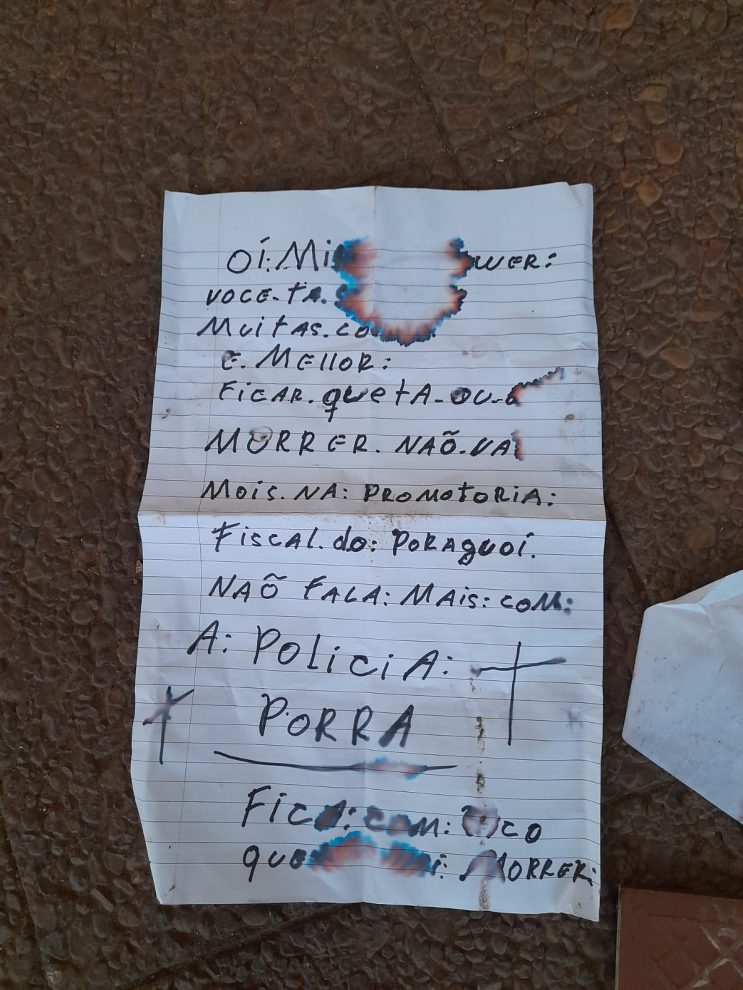 OÍ: Mi WER:
VOCE-TA.
MUITAS.CO
E. MELLOR:
FICAR. quetA-OU-
MORRER. NAÕ-VA
MOIS. NA: PROMOTORIA:
FISCAL.do: PORAguoí.
NAÕ FALA: MAIS: COM:
A: POLICIA:
PORRA
FICA: COM:
que MORRER: